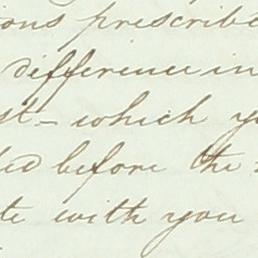 ions prescribe
difference in
st - which y
ed before the
te with you